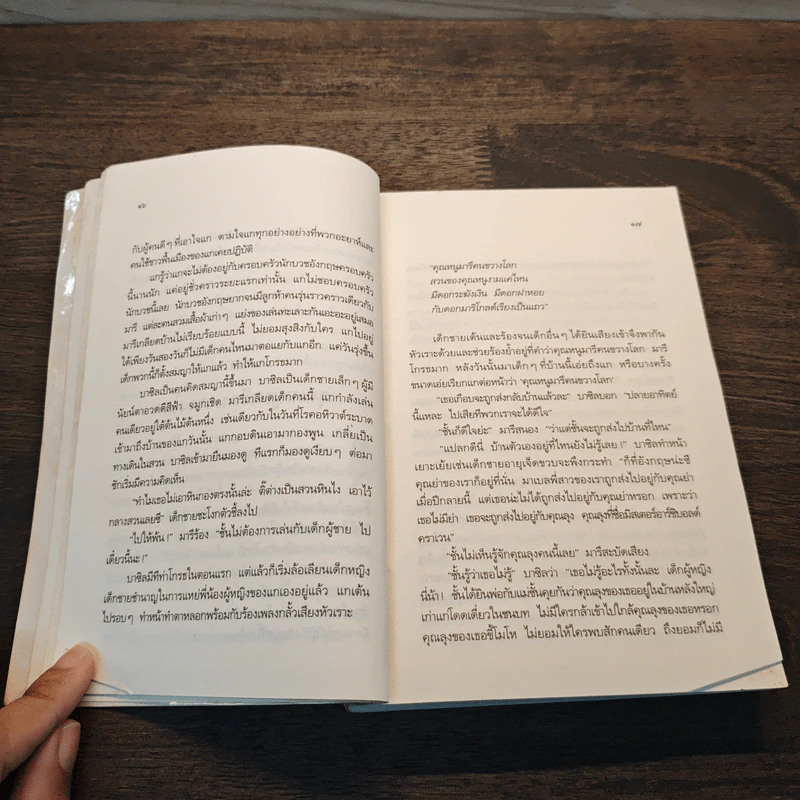 ๑๖
กับผู้คนดีๆ ที่เอาใจแก ตามใจแกทุกอย่างอย่างที่พวกอะยาห์และ
คนใช้ชาวพื้นเมืองของแกเคยปฏิบัติ
แกรู้ว่าแกจะไม่ต้องอยู่กับครอบครัวนักบวชอังกฤษครอบครัว
นี้นานนัก แค่อยู่ชั่วคราวระยะแรกเท่านั้น แกไม่ชอบครอบครัว
นักบวชนี้เลย นักบวชอังกฤษยากจนมีลูกห้าคนรุ่นราวคราวเดียวกับ
มารี แต่ละคนสวมเสื้อผ้าเก่าๆ แย่งของเล่นทะเลาะกันเอะอะอยู่เสมอ
มารีเกลียดบ้านไม่เรียบร้อยแบบนี้ ไม่ยอมสุงสิงกับใคร แกไปอยู่
ได้เพียงวันสองวันก็ไม่มีเด็กคนไหนมาตอแยกับแกอีก แค่วันรุ่งขึ้น
เด็กพวกนี้ก็ตั้งสมญาให้แกแล้ว ทำให้แกโกรธมาก
บาซิลเป็นคนคิดสมญานี้ขึ้นมา บาซิลเป็นเด็กชายเล็กๆ ผู้มี
นัยน์ตาอวดดีสีฟ้า จมูกเชิด มารีเกลียดเด็กคนนี้ แกกำลังเล่น
คนเดียวอยู่ใต้ต้นไม้ต้นหนึ่ง เช่นเดียวกับในวันที่โรคอหิวาต์ระบาด
เข้ามาถึงบ้านของแกวันนั้น แกกอบดินเอามากองพูน เกลี่ยเป็น
ทางเดินในสวน บาซิลเข้ามายืนมองดู ทีแรกก็มองดูเงียบๆ ต่อมา
ชักเริ่มมีความคิดเห็น
“ทำไมเธอไม่เอาหินกองตรงนั้นล่ะ ตี๊ต่างเป็นสวนหินไง เอาไว้
กลางสวนเลยซี” เด็กชายชะโงกตัวชี้ลงไป
“ไปให้พ้น!” มารีร้อง “ชั้นไม่ต้องการเล่นกับเด็กผู้ชาย ไป
เดี๋ยวนี้นะ!”
บาซิลมีทีท่าโกรธในตอนแรก แต่แล้วก็เริ่มล้อเลียนเด็กหญิง
เด็กชายชำนาญในการแหย่พี่น้องผู้หญิงของแกเองอยู่แล้ว แกเต้น
ไปรอบๆ ทำหน้าทำตาหลอกพร้อมกับร้องเพลงกลั้วเสียงหัวเราะ
๑๗
“คุณหนูมารีคนขวางโลก
สวนของคุณหนูงามแค่ไหน
มีดอกระฆังเงิน มีดอกฝาหอย
กับดอกมาริโกลด์เรียงเป็นแถว”
เด็กชายเต้นและร้องจนเด็กอื่นๆ ได้ยินเสียงเข้าจึงพากัน
หัวเราะด้วยและช่วยร้องย้ำอยู่ที่คำว่าคุณหนูมารีคนขวางโลก มารี
โกรธมาก หลังวันนั้นมาเด็กๆ ที่บ้านนี้เอ่ยถึงแก หรือบางครั้ง
ขนาดเอ่ยเรียกแกต่อหน้าว่า ‘คุณหนูมารีคนขวางโลก’
“เธอเกือบจะถูกส่งกลับบ้านแล้วละ” บาซิลบอก “ปลายอาทิตย์
นี้แหละ ไปเสียทีพวกเราจะได้ดีใจ”
“ชั้นก็ดีใจย่ะ” มารีสนอง “ว่าแต่ชั้นจะถูกส่งไปบ้านที่ไหน”
“แปลกดีนี่ บ้านตัวเองอยู่ที่ไหนยังไม่รู้เลย!” บาซิลทำหน้า
เยาะเย้ยเช่นเด็กชายอายุเจ็ดขวบจะพึงกระทำ “ก็ที่อังกฤษน่ะซี
คุณย่าของเราก็อยู่ที่นั่น มาเบลพี่สาวของเราถูกส่งไปอยู่กับคุณย่า
เมื่อปีกลายนี้ แต่เธอน่ะไม่ได้ถูกส่งไปอยู่กับคุณย่าหรอก เพราะว่า
เธอไม่มีย่า เธอจะถูกส่งไปอยู่กับคุณลุง คุณลุงที่ชื่อมิสเตอร์อาร์ชิบอลด์
คราเวน”
“ชั้นไม่เห็นรู้จักคุณลุงคนนี้เลย” มารีสะบัดเสียง
“ชั้นรู้ว่าเธอไม่รู้” บาซิลว่า “เธอไม่รู้อะไรทั้งนั้นละ เด็กผู้หญิง
นี่น้า! ชั้นได้ยินพ่อกับแม่ชั้นคุยกันว่าคุณลุงของเธออยู่ในบ้านหลังใหญ่
เก่าแก่โดดเดี่ยวในชนบท ไม่มีใครกล้าเข้าไปใกล้คุณลุงของเธอหรอก
คุณลุงของเธอขี้โมโห ไม่ยอมให้ใครพบสักคนเดียว ถึงยอมก็ไม่มี